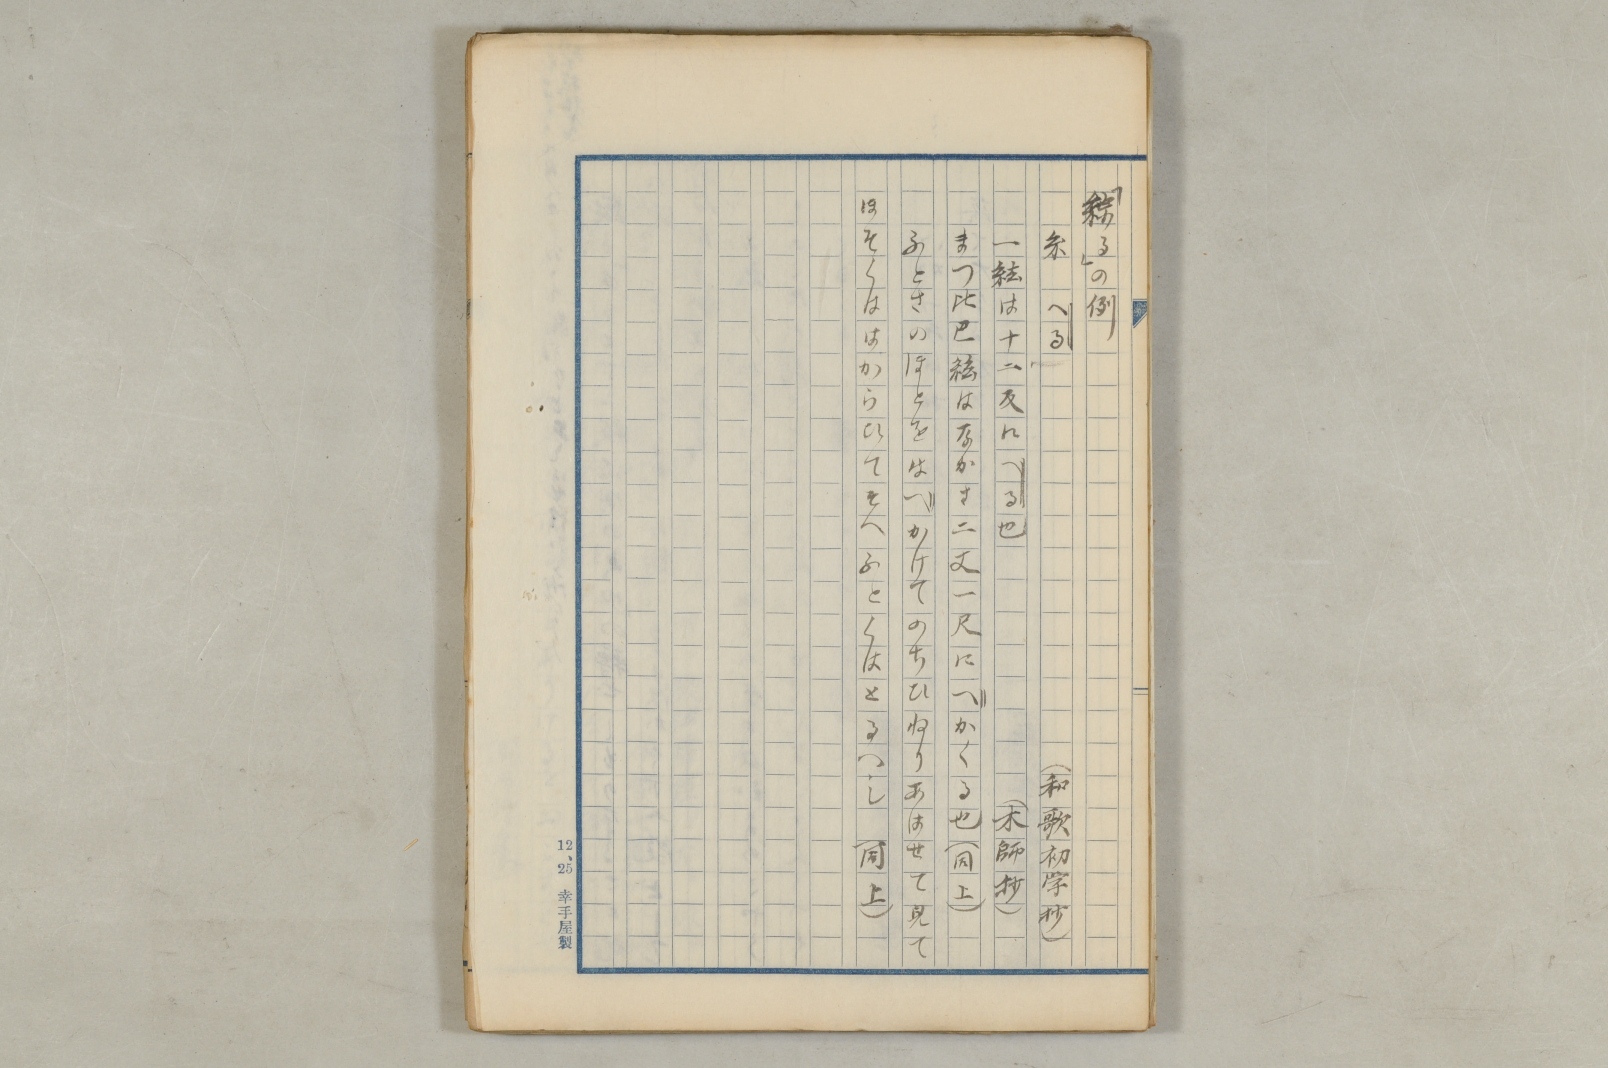 「綜る」の例
糸　へる　（和歌初学抄）
一絃は十二反にへる也　（木師抄）
まつ比巴絃はなかさ二丈一尺にへかくる也（同上）
ふとさのほとをはへかけてのちひねりあはせて見て
ほそくははからひてそへふとくはとるへし　（同上）
12、25 幸手屋製